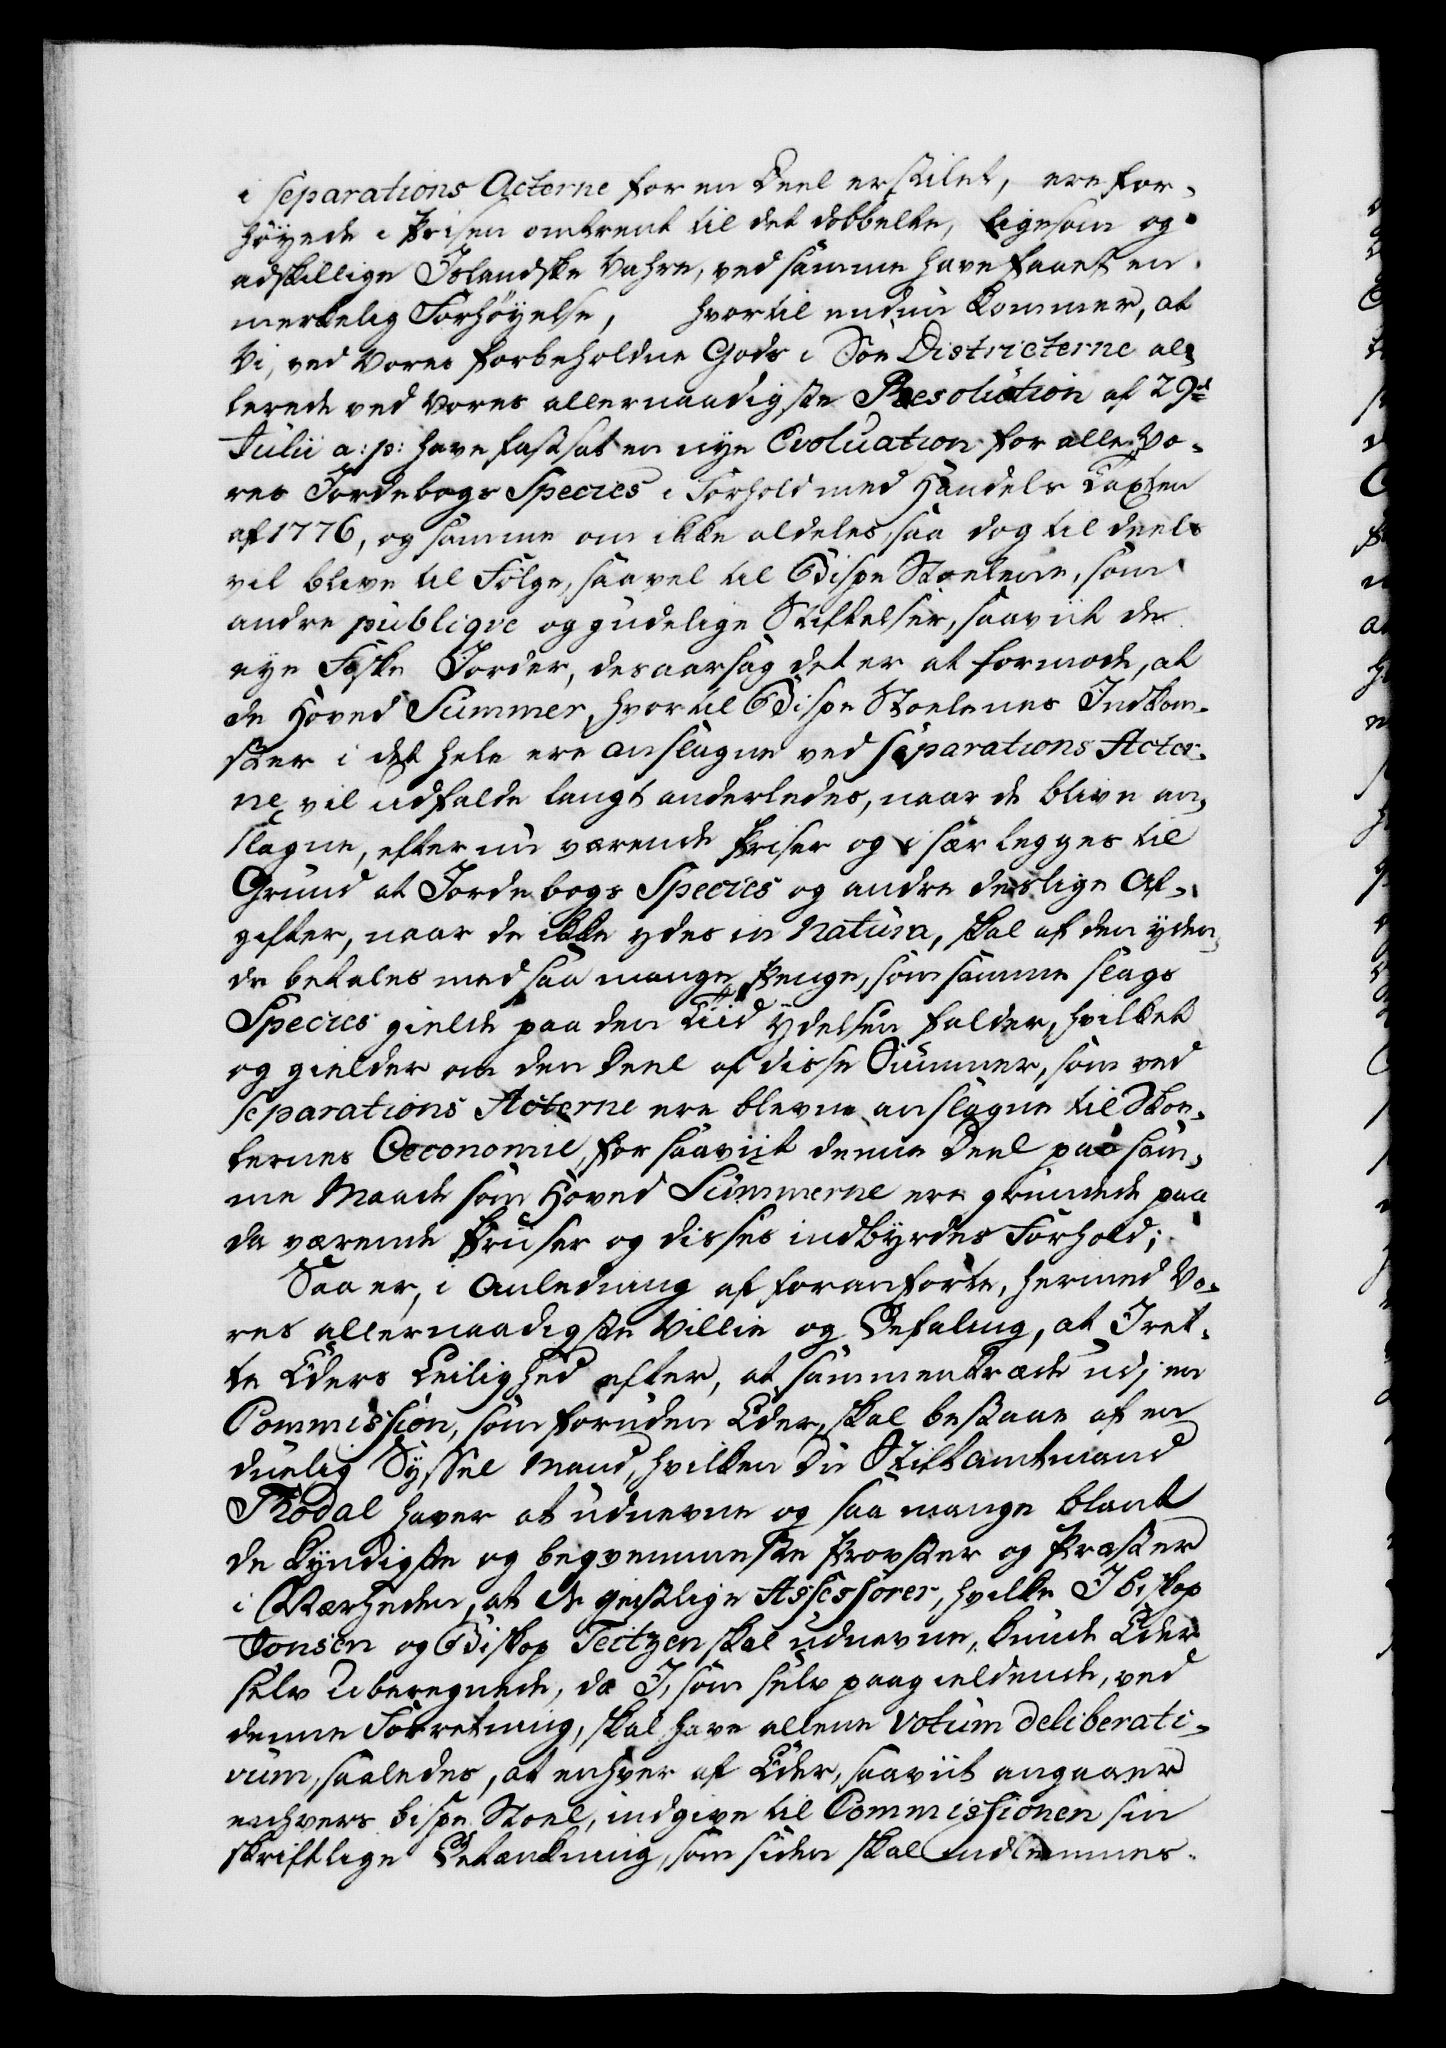 i Separations Acterne for en Deel erstilet, ere for-
høyede i Prisen omtrent til det dobbelte, ligesom og
adskillige Islandske Vahre, ved samme have faaet en
merkelig Forhøyelse, hvortil endnu kommer, at
Vi, ved Vores forbeholdne Gods i Sön Districterne al-
lerede ved Vores allernaadigste Resolution af 29de
Julii a: p: have fastsat en nye Evoluation for alle Vo-
res Jordebogs Species i Forhold med Handels Taxten
af 1776, og samme om ikke aldeles, saa dog til deels
vil blive til Følge, saavel til Bispe Stoelene, som
andre publiqve og gudelige Stiftelser, saaviit de
eye Faste Jorder, desaarsag det er at formode, at
de Hoved Summer, hvortil Bispe Stoelenes Indkom-
ster i det hele ere anslagne ved Separations Acter-
ne, vil udfalde langt anderledes, naar de blive an-
slagne, efter nu værende Priser og i sær legges til
Grund at Jordebogs Species og andre deslige Af-
gifter, naar de ikke ydes in Natura, skal af den yden-
de betales med saa mange Penge, som samme slags
Species gielde paa den Tiid Ydelsen falder, hvilket
og gielder om den Deel af disse Summer, som ved
Separations Acterne ere blevne anslagne til Stoe-
lernes Oeconomie, for saaviit denne Deel paa sam-
me Maade som Hoved Summerne ere grundede paa
da værende Priiser og disses indbyrdes Forhold;
Saa er, i Anledning af foranførte, hermed Vo-
res allernaadigste Villie og Befaling, at I ret-
te Eders Leilighed efter, at sammentræde udj en
Commission, som foruden Eder, skal bestaae af en
duelig Syssel Mand, hvilken Du Stiftamtmand
Thodal haver at udnevne og saa mange blant
de kyndigste og beqvemmeste Provster og Præster
i Nærheden, at de geistlige Assessorer, hvilke I Biskop
Jonsen og Biskop Teitzen skal udnevne, kunde Eder
selv uberegnede, da I, som selv paagieldende, ved
denne Forretning, skal have allene Votum deliberati-
vum, saaledes, at enhver af Eder, saaviit angaaer
enhvers bispe Stoel, indgive til Commissionen sin
skriftlige Betænkning, som siden skal indlemmes.